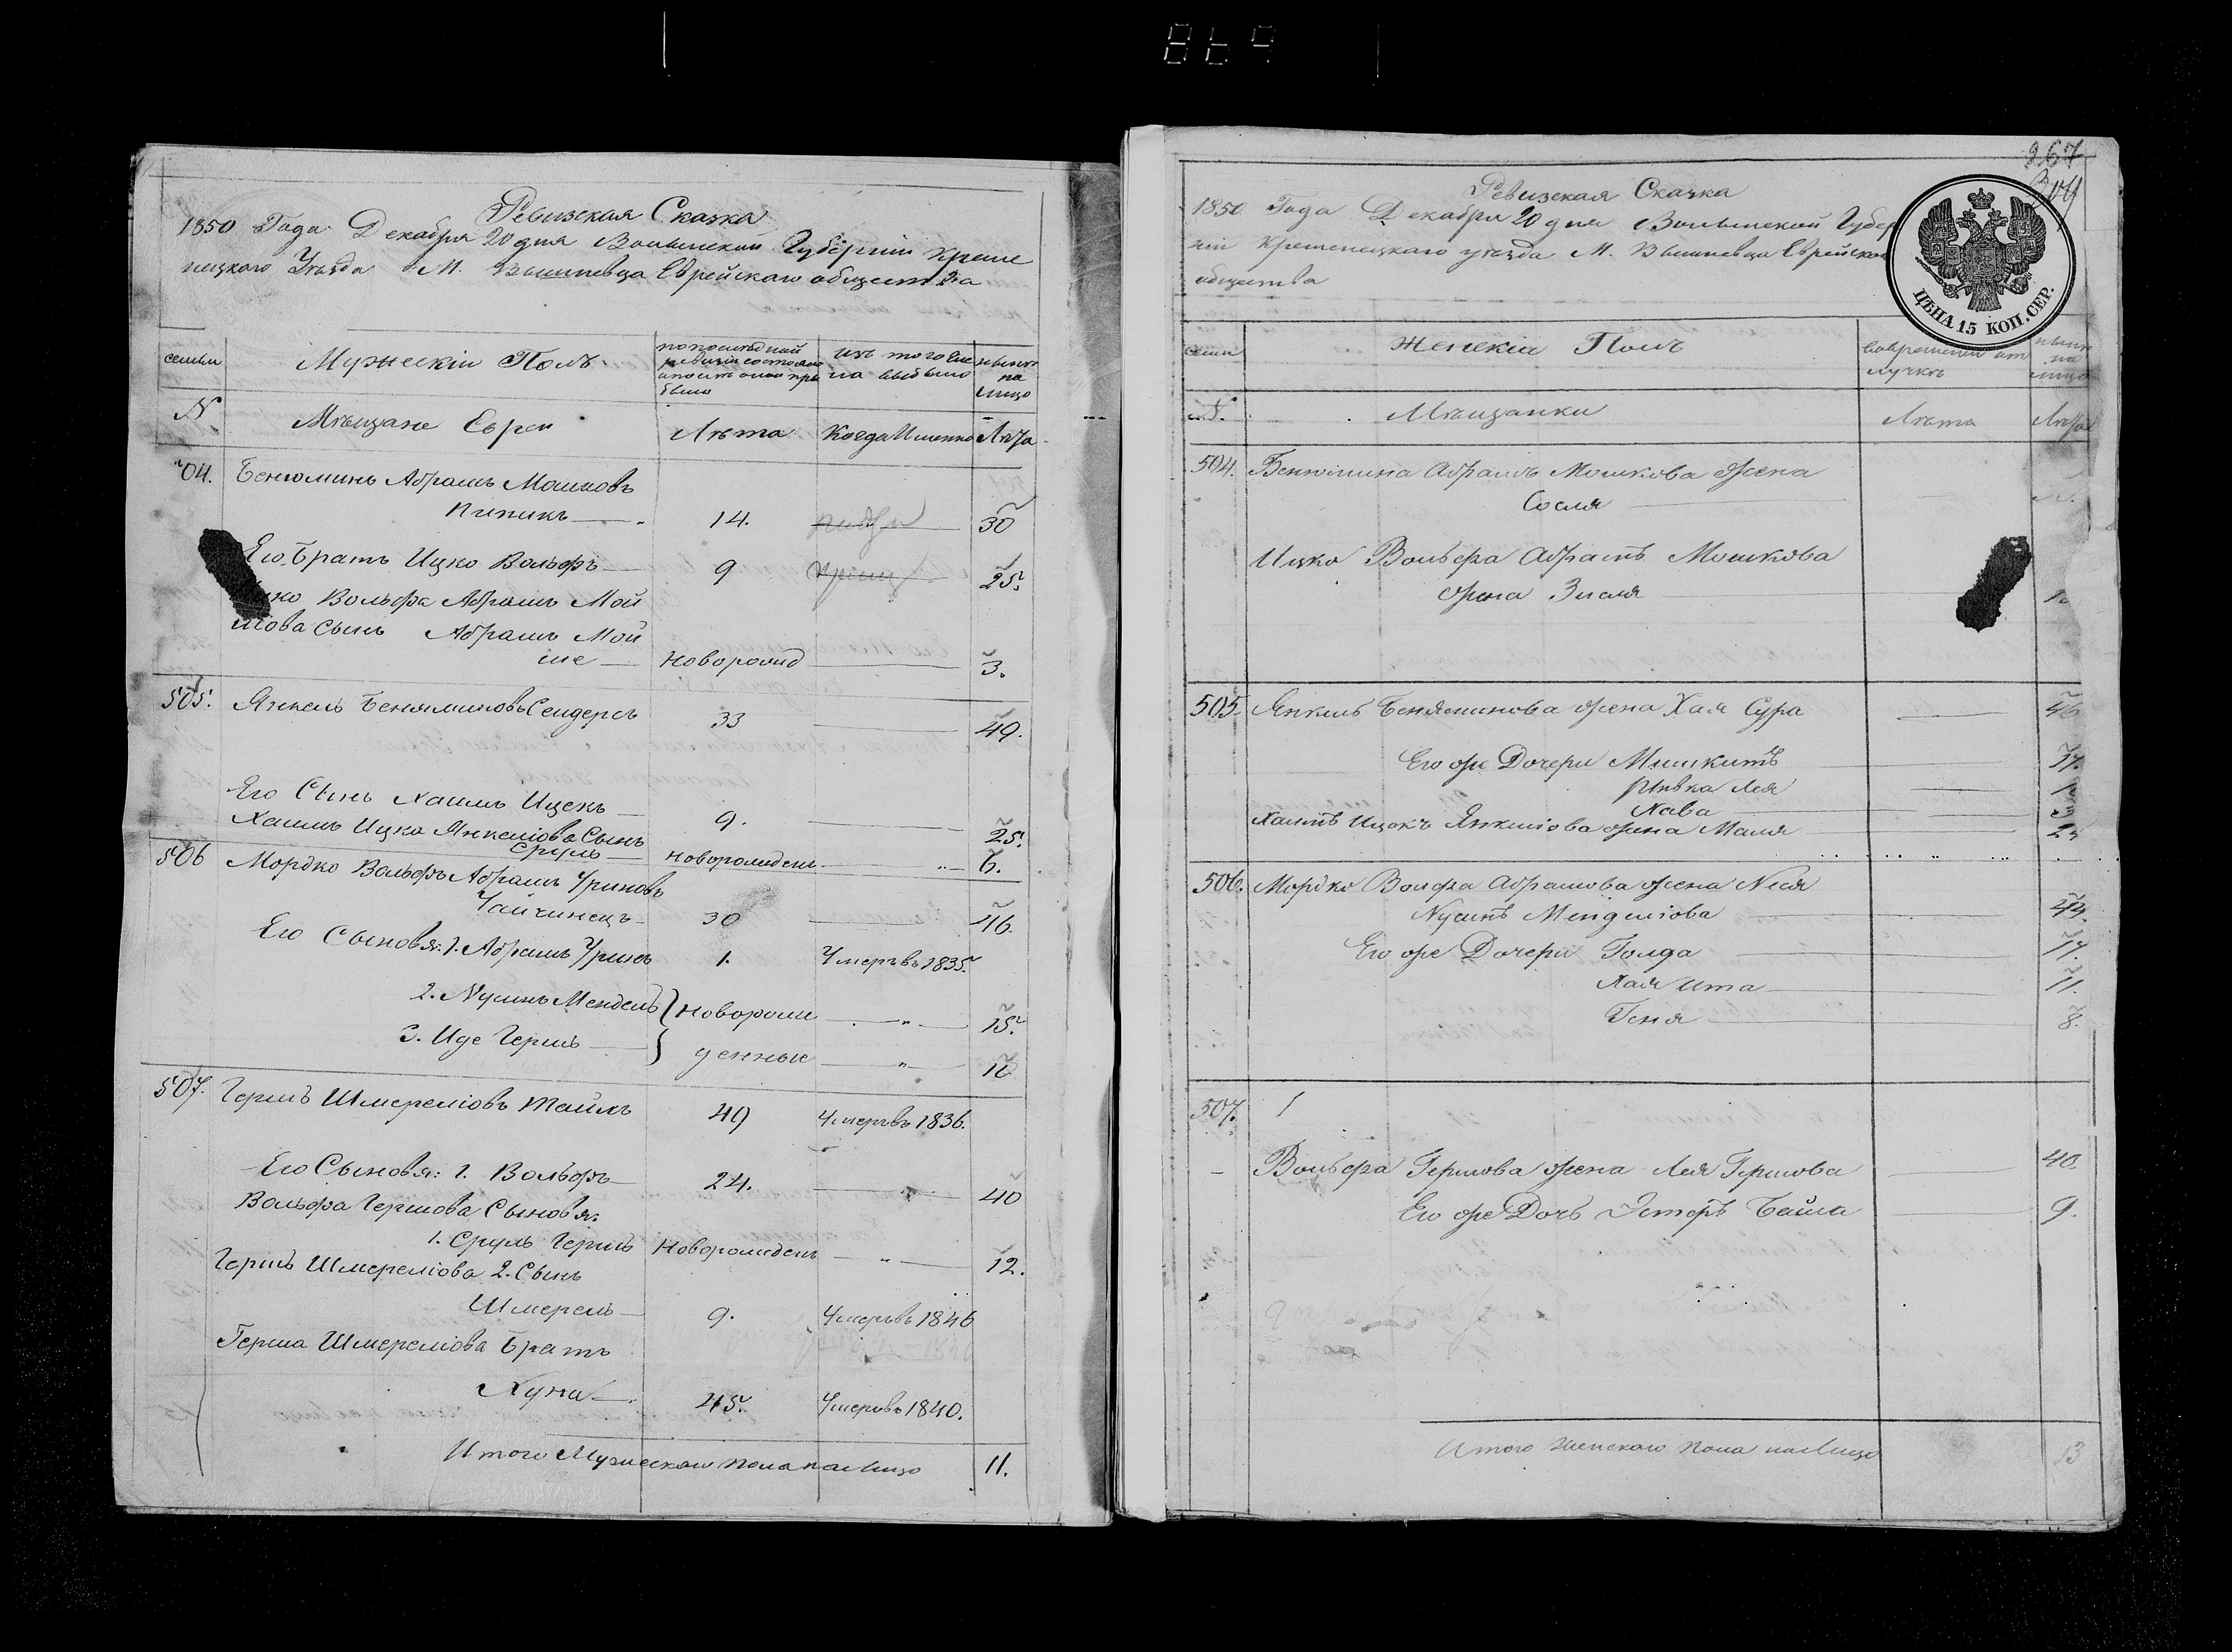 Ревизская Сказка
1850 Года Декабря 20 дня Волынской Губернiи Креме
нецкаго Уезда М. Вышневца Еврейскаго общества
семьи
Мужескiи Полъ
по последней
ревизiи состояло
и после оной при
было
изъ того чис
ла выбыло
ныне
на
лицо
N
Мещане Евреи
Лета
Когда Именно
Лета
504.
Бенюминъ Абрамъ Мошковъ
Пипикъ
14.
30
Его Братъ Ицко Вольфъ
9
25.
Ицко Вольфа Абрамъ Мой
Сынъ Абрамъ Мой
ше
Новорожд
3.
505.
Янкель Беняминовъ Сендеръ
33
49.
Его Сынъ Хаимъ Ицекъ
9.
25.
Хаимъ Ицка Янкелiова Сынъ
Сруль
Новорожденъ
6.
506
Мордко Вольфъ Абрамъ Уриновъ
Чайчинецъ
30
46.
Его Сыновя: 1. Абрамъ Уринъ
1.
Умеръ въ 1835.
2. Нусинъ Мендель
Новорож
15.
3. Иде Гершъ
денные
10
507.
Гершъ Шмерелiовъ Тайхъ
49
Умеръ въ 1836.
Его Сыновя: 1. Вольфъ
24.
40
Вольфа Гершова Сыновя:
1. Сруль Гершъ
Новорожденъ
12.
Гершъ Шмерелiова 2. Сынъ
Шмерель
9.
Умеръ въ 1846
Герша Шмерелiова Братъ
Хуна
45.
Умеръ въ 1840.
Итого Мужескаго пола на лицо
11.
267
Ревизская Сказка
1850 Года Декабря 20 дня Волынской Губер
нiи Кременецкаго уезда М. Вышневца Еврейскаго
общества
ЦѢНА 15 КОП. СЕР.
семьи
Женскiй Полъ
Во временной от
лучке
ныне
на
лицо
N.
Мещанки
Лета
Лета
504.
Бенюмина Абрамъ Мошкова жена
Сосля
Ицко Вольфа Абрамъ Мошкова
жена Зисля
505.
Янкель Беняминова жена Хая Сура
46
Его же Дочери
Ривка Лея
Хава
Хаимъ Ицокъ Янкелiова жена Маля
506.
Мордко Вольфа Абрамова жена Неся
Нусинъ Менделiова
44.
Его же Дочери Голда
17.
Хая Ита
11.
Геня
8.
507.
Вольфа Гершова жена Лея Гершова
40.
Его же Дочь Эстеръ Байла
9.
Итого женскаго пола на лицо
13